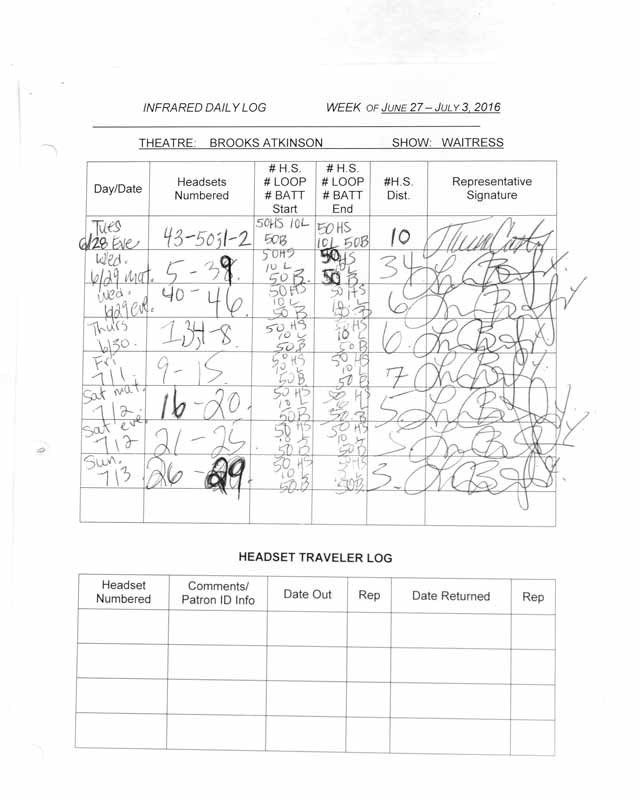 INFRARED DAILY LOG WEEK OF JUNE 27 – JULY 3, 2016
THEATRE: BROOKS ATKINSON SHOW: WAITRESS
Day/Date Headsets Numbered # H.S. # LOOP # BATT Start # H.S. # LOOP # BATT End #H.S. Dist. Representative Signature
Tues 6/28 Eve 43-50;1-2 50HS 10L 50B 50HS 10L 50B 10
Wed. 6/29 mat. 5-39 50HS 10L 50B 50 10L 50B 34
Wed. 6/29 eve. 40-46 50HS 10L 50B 50HS 10L 50B 6
Thurs 6/30. 50HS 10L 50B 50HS 10L 50B 6.
Fri 7/1. 9-15. 50HS 10L 50B 50HS 10L 50B 7
Sat mat. 7/2. 16-20. 50HS 10L 50B 50 5
Sat eve. 7/2 21-25 50HS 50B 50HS 10L 50B 5
Sun. 7/3 26-29 50HS 10L 50B 50B. 3.
HEADSET TRAVELER LOG
Headset Numbered Comments/ Patron ID Info Date Out Rep Date Returned Rep